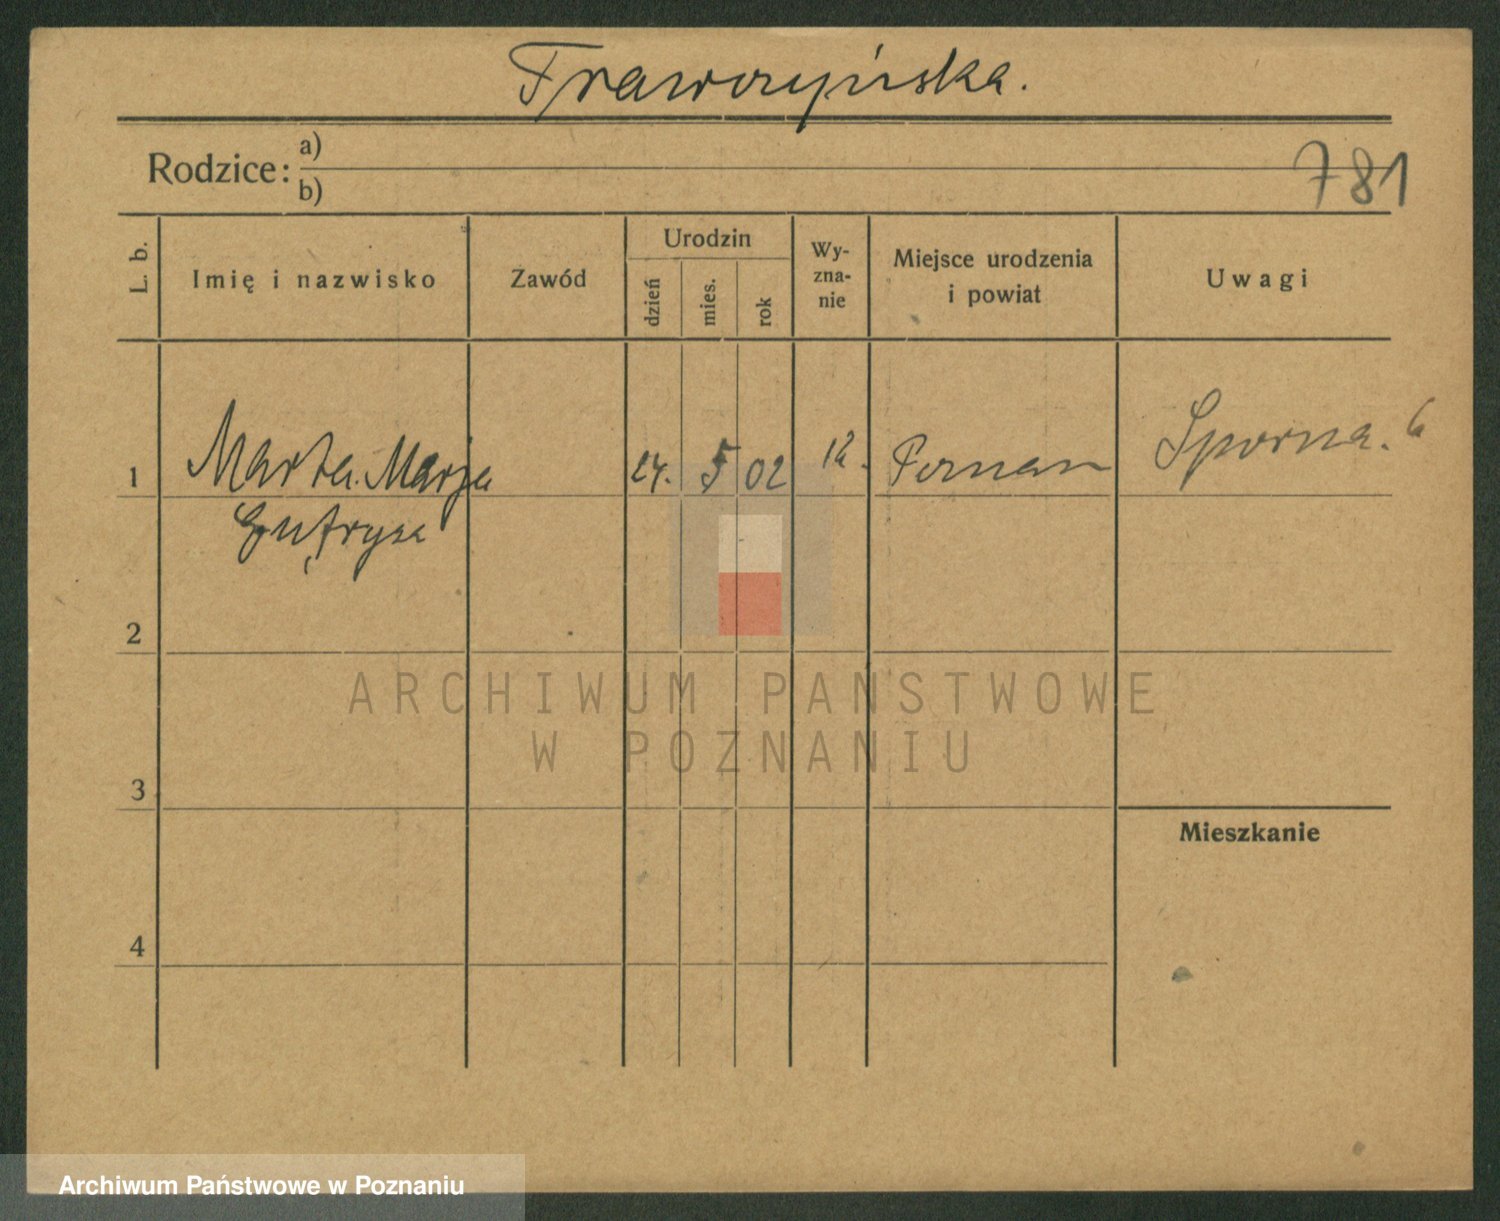 Frawczyńska.
Rodzice: a)
b)
781
L. b.
Imię i nazwisko
Zawód
Urodzin
dzień
mies.
rok
Wy-
zna-
nie
Miejsce urodzenia
i powiat
Uwagi
1 Marta Marja 24. 5 02 Poznań Sporna. 6
2
3
Mieszkanie
4
ARCHIWUM PAŃSTWOWE
W POZNANIU
Archiwum Państwowe w Poznaniu